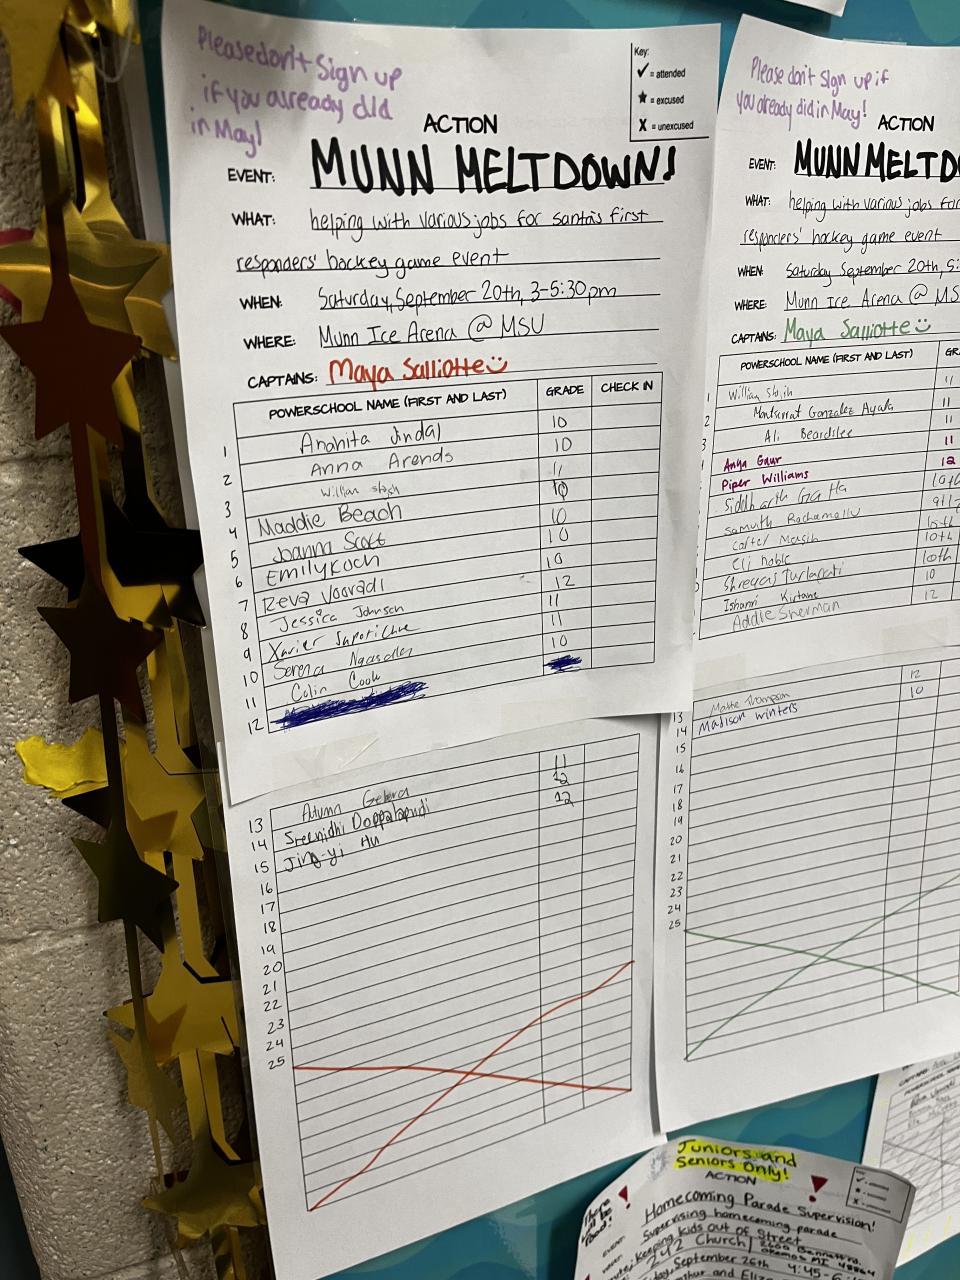 Please don't sign up
if you already did
in May!
Key:
✓ = attended
★ = excused
X = unexcused
ACTION
EVENT: MUNN MELTDOWN!
WHAT: helping with various jobs for santa's first
responders' hockey game event
WHEN: Saturday, September 20th, 3-5:30pm
WHERE: Munn Ice Arena @ MSU
CAPTAINS: Maya Salliotte
POWERSCHOOL NAME (FIRST AND LAST) GRADE CHECK IN
1 Anahita Jindal 10
2 Anna Arends 10
3 William 11
4 Maddie Beach 10
5 Joanna Scott 10
6 Emily Koch 10
7 Reva Yooradi 10
8 Jessica Johnson 12
9 Xavier 11
10 Serena 11
11 Colin Cook 10
12
13 Autumn 11
14 Sreenidhi Doppalapudi 12
15 Jing-yi Hu 12
16
17
18
19
20
21
22
23
24
25
Please don't sign up if
you already did in May!
ACTION
EVENT: MUNN MELTD
WHAT: helping with various jobs for
responders' hockey game event
WHEN: Saturday September 20th,
WHERE: Munn Ice Arena @ MS
CAPTAINS: Maya Salliotte
POWERSCHOOL NAME (FIRST AND LAST) GR
1 William 11
2 Montserrat Gonzalez Ayala 11
3 Ali Beardslee 11
Anya Gaur 11
Piper Williams 12
Siddharth 10th
Samuth Rachamallu
Carter 10th
Eli Noble 10th
Shreyas Turlapati 10th
Ishani Kirtane 10
Addie Sherman 12
13 Thompson 12
14 Madison Winters 10
15
16
17
18
19
20
21
22
23
24
25
Juniors and
Seniors Only!
ACTION
Homecoming Parade Supervision!
Supervising homecoming parade
Keeping kids out of Street
242 Church
Okemos MI 48864
September 26th 4:45-6